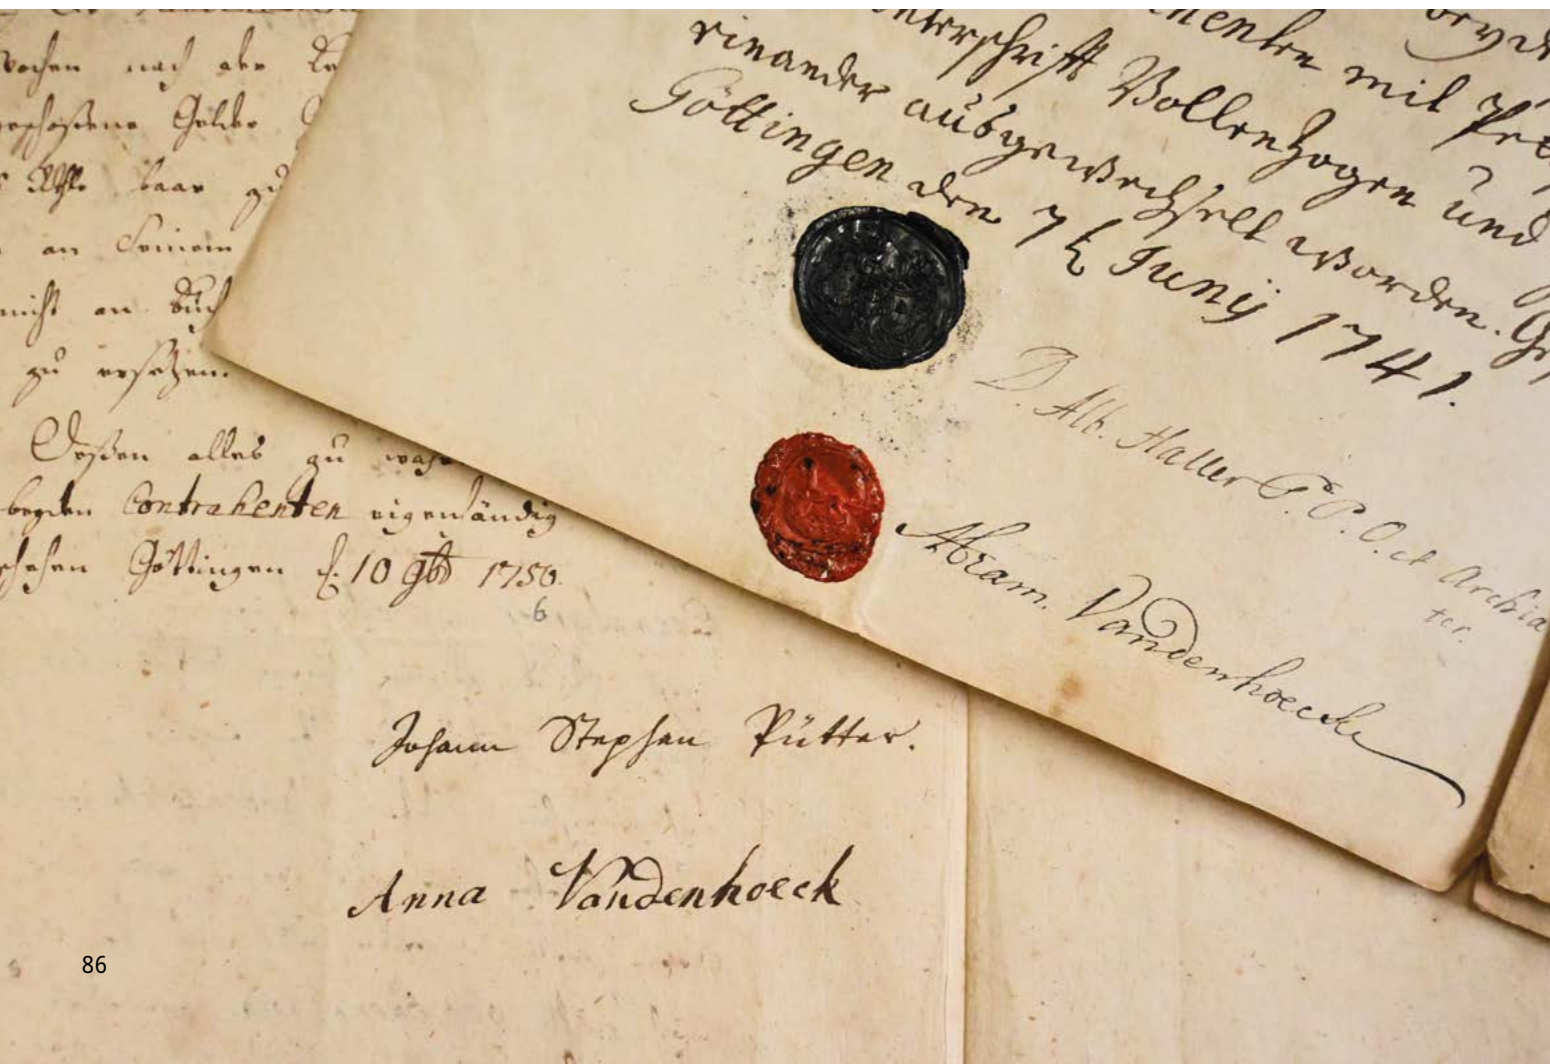 wochen nach der
geschoßene Gelder
Rthlr baar zu
an Seinem
nicht an
zu ersetzen.
Deßen alles zu
beyden Contrahenten eigenhändig
Göttingen d. 10 9br 1750.
6
Johann Stephan Pütter.
Anna Vandenhoeck
mit
unterschrifft Vollenzogen und
einander ausgewechselt worden.
Göttingen den 7t Junij 1741.
D. Alb. Haller P. P. O. et Archia
ter.
Abram. Vandenhoeck
86